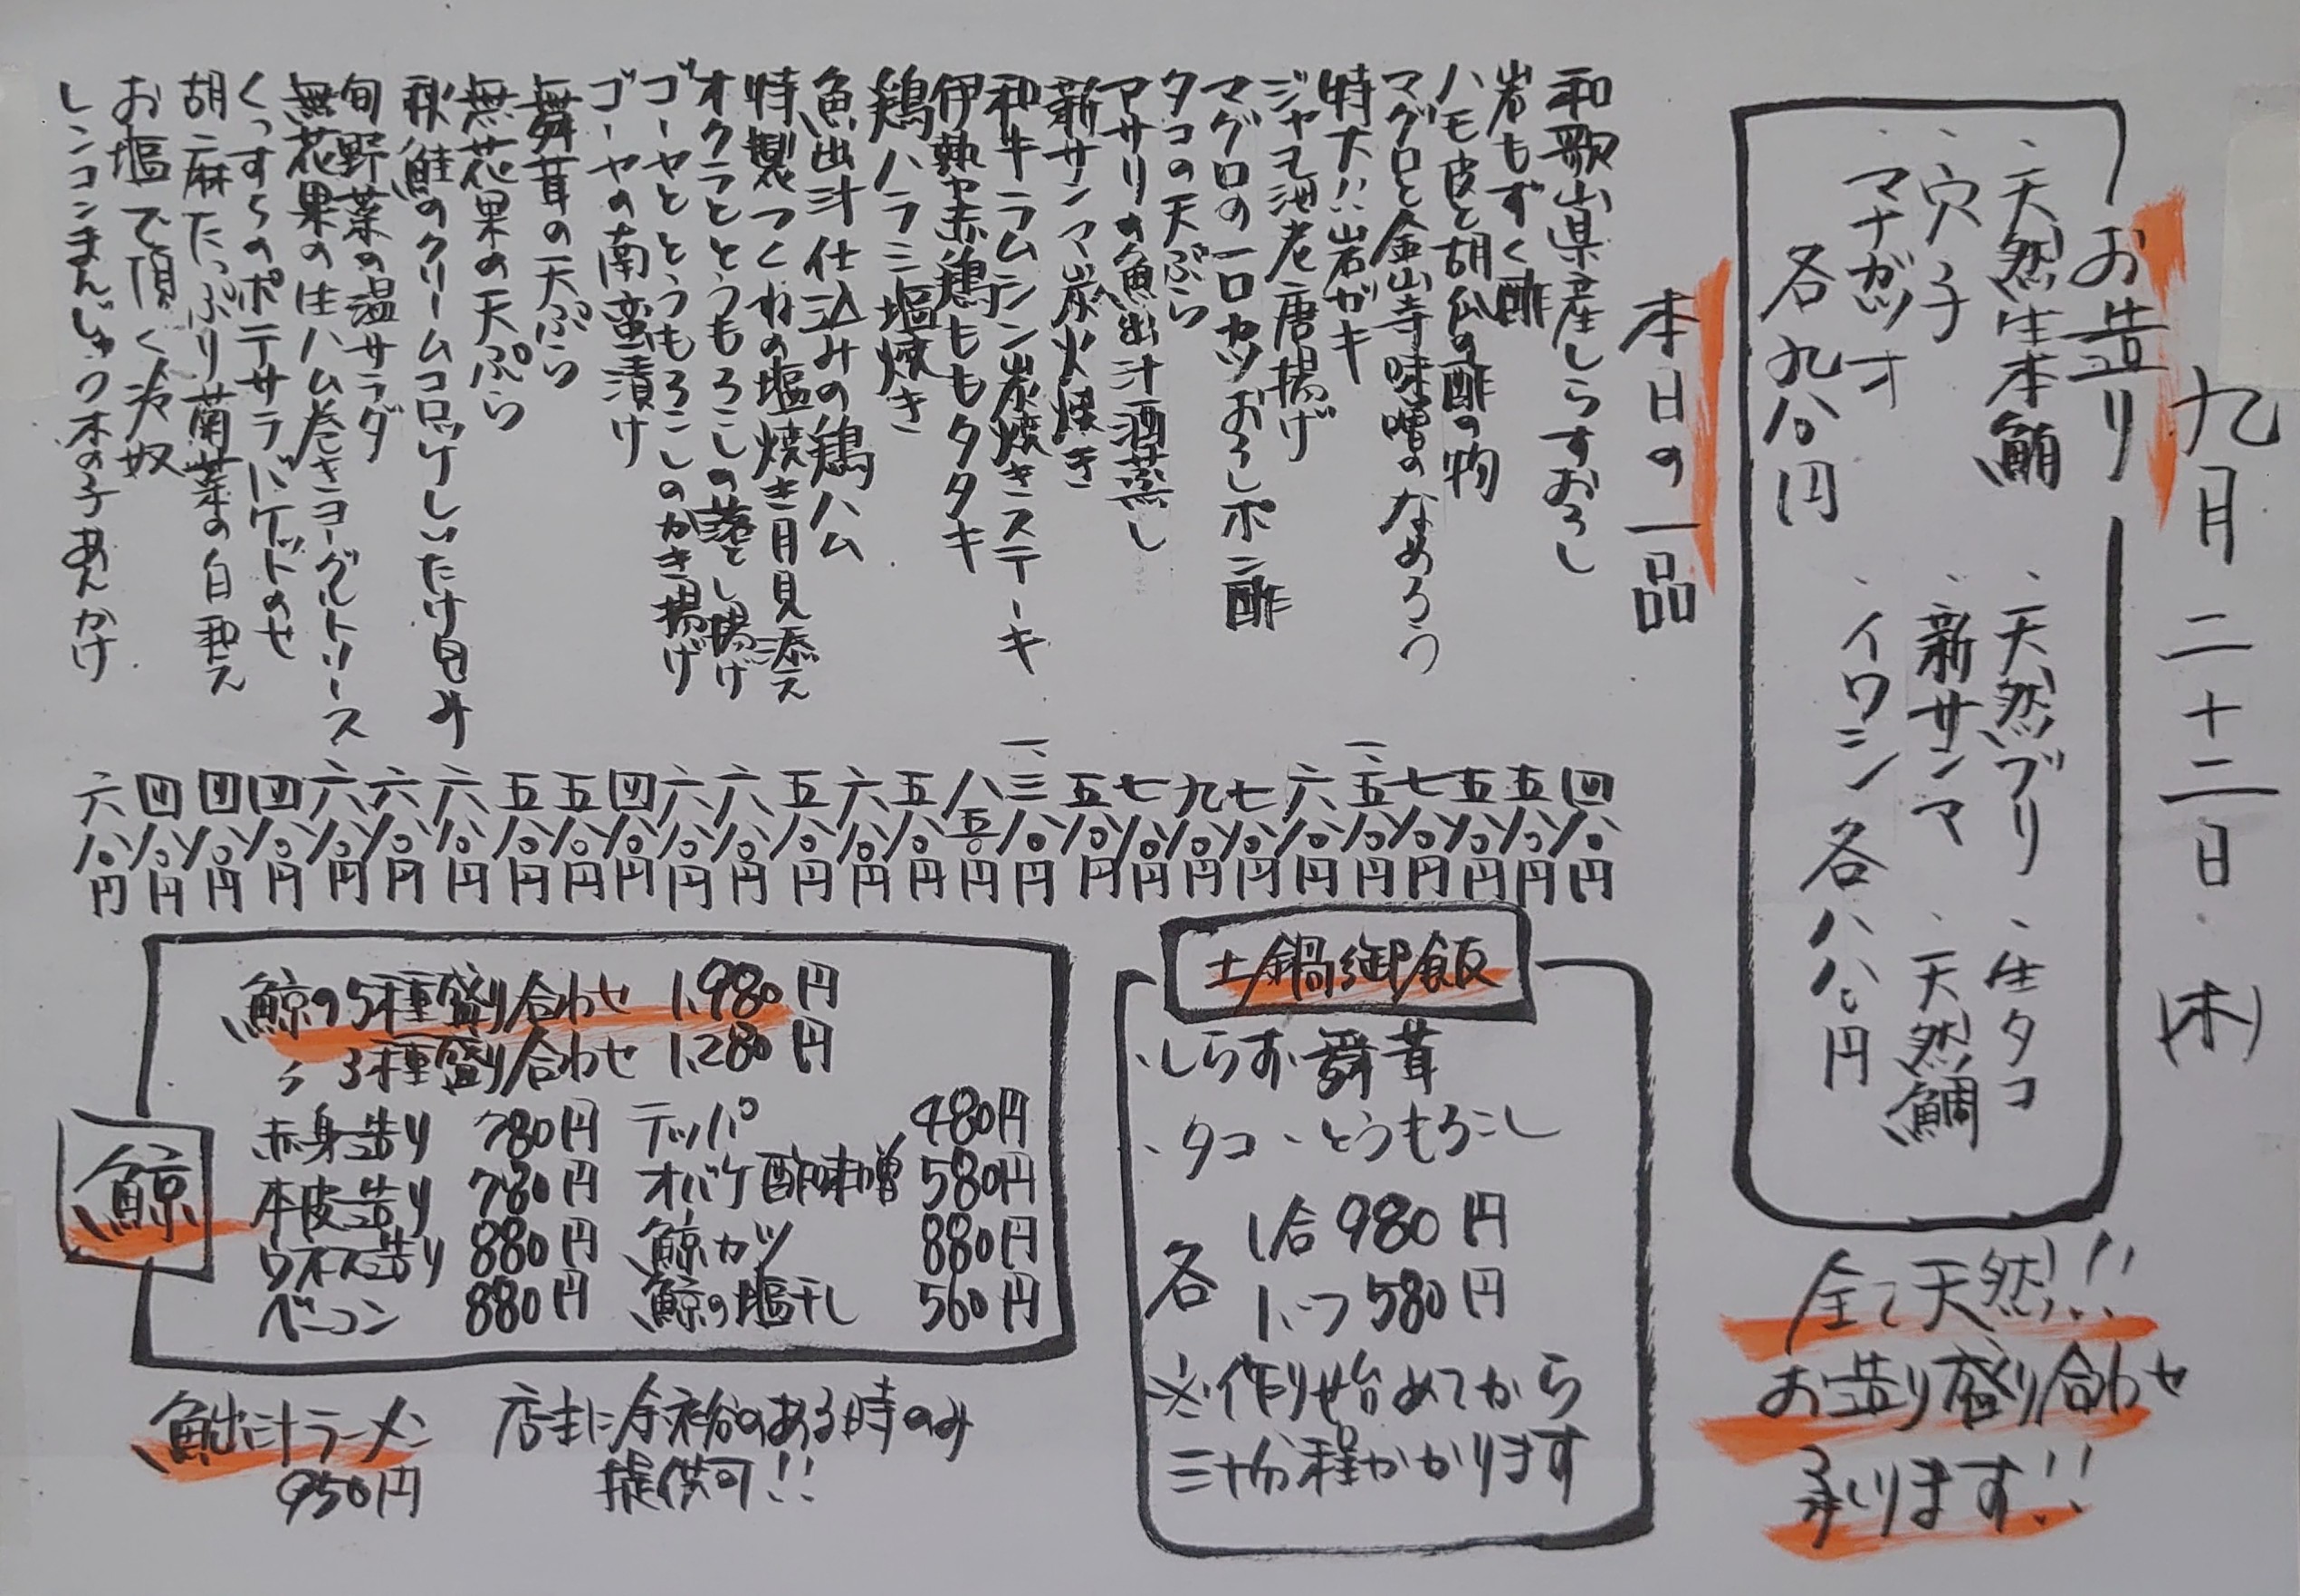 九月二十二日(木)
お造り
・天然生本鮪 ・天然ブリ ・生タコ
・穴子 ・新サンマ ・天然鯛
・マナガツオ ・イワシ 各八八〇円
各九八〇円
全て天然!!
お造り盛り合わせ
承ります!!
本日の一品
和歌山県産しらすおろし 四八〇円
岩もずく酢 五八〇円
ハモ皮と胡瓜の酢の物 五八〇円
マグロと金山寺味噌のなめろう 七八〇円
特大!!岩ガキ 一、五八〇円
ジャコ海老唐揚げ 六八〇円
マグロの一口カツおろしポン酢 七八〇円
タコの天ぷら 九八〇円
アサリの魚出汁酒蒸し 七八〇円
新サンマ炭火焼き 五八〇円
和牛ラムシン炭焼きステーキ 一、三八〇円
伊勢赤鶏ももタタキ 八五〇円
鶏ハラミ塩焼き 五八〇円
魚出汁仕込みの鶏ハム 六八〇円
特製つくねの塩焼き月見添え 五八〇円
オクラととうもろこしの落とし揚げ 六八〇円
ゴーヤととうもろこしのかき揚げ 六八〇円
ゴーヤの南蛮漬け 四八〇円
舞茸の天ぷら 五八〇円
無花果の天ぷら 五八〇円
秋鮭のクリームコロッケしいたけ包み 六八〇円
旬野菜の温サラダ 六八〇円
無花果の生ハム巻きヨーグルトソース 六八〇円
くっすらのポテサラバゲットのせ 四八〇円
胡麻たっぷり菊菜の白和え 四八〇円
お塩で頂く冷奴 四八〇円
レンコンまんじゅう木の子あんかけ 六八〇円
土鍋御飯
・しらす・舞茸
・タコ・とうもろこし
各 1合 980円
1/2 580円
※作り始めてから
三十分程かかります
鯨
鯨の5種盛り合わせ 1,980円
〃 3種盛り合わせ 1,280円
赤身造り 780円 テッパ 480円
本皮造り 780円 オバケ酢味噌 580円
ウネス造り 880円 鯨カツ 880円
ベーコン 880円 鯨の塩干し 560円
魚出汁ラーメン
950円
店主に余裕のある時のみ
提供可!!